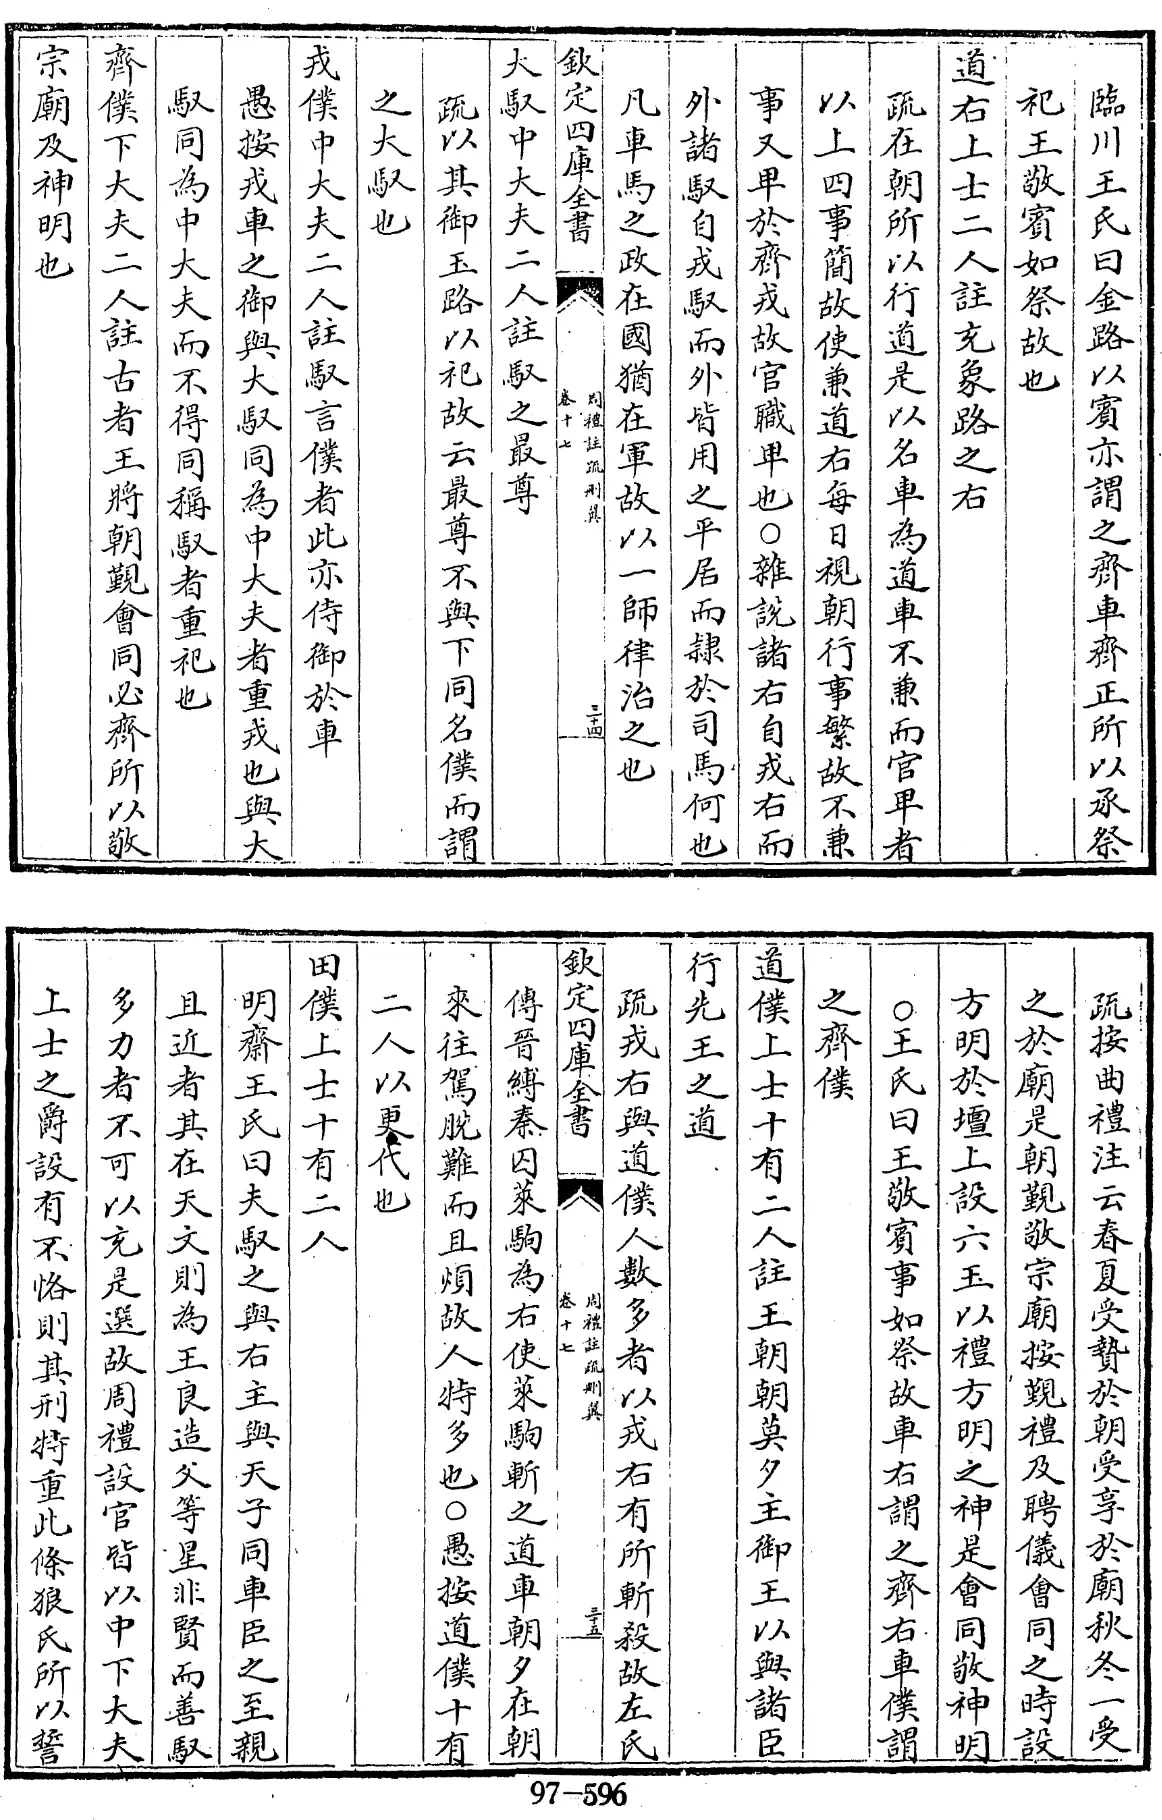 臨川王氏曰金路以賓亦謂之齊車齊正所以承祭
祀王敬賓如祭故也
道右上士二人註充象路之右
疏在朝所以行道是以名車為道車不兼而官卑者
以上四事簡故使兼道右每日視朝行事繁故不兼
事又卑於齊戎故官職卑也○雜説諸右自戎右而
外諸馭自戎馭而外皆用之平居而隸於司馬何也
凡車馬之政在國猶在軍故以一師律治之也
欽定四庫全書
周禮註疏刪翼
卷十七
三十四
大馭中大夫二人註馭之最尊
疏以其御玉路以祀故云最尊不與下同名僕而謂
之大馭也
戎僕中大夫二人註馭言僕者此亦侍御於車
愚按戎車之御與大馭同為中大夫者重戎也與大
馭同為中大夫而不得同稱馭者重祀也
齊僕下大夫二人註古者王將朝覲會同必齊所以敬
宗廟及神明也
疏按曲禮注云春夏受贄於朝受享於廟秋冬一受
之於廟是朝覲敬宗廟按覲禮及聘儀會同之時設
方明於壇上設六玉以禮方明之神是會同敬神明
○王氏曰王敬賓事如祭故車右謂之齊右車僕謂
之齊僕
道僕上士十有二人註王朝朝莫夕主御王以與諸臣
行先王之道
疏戎右與道僕人數多者以戎右有所斬殺故左氏
欽定四庫全書
周禮註疏刪翼
卷十七
三十五
傳晉縛秦囚萊駒為右使萊駒斬之道車朝夕在朝
來往駕脱難而且煩故人特多也○愚按道僕十有
二人以更代也
田僕上士十有二人
明齋王氏曰夫馭之與右主與天子同車臣之至親
且近者其在天文則為王良造父等星非賢而善馭
多力者不可以充是選故周禮設官皆以中下大夫
上士之爵設有不恪則其刑特重此條狼氏所以誓
97-596